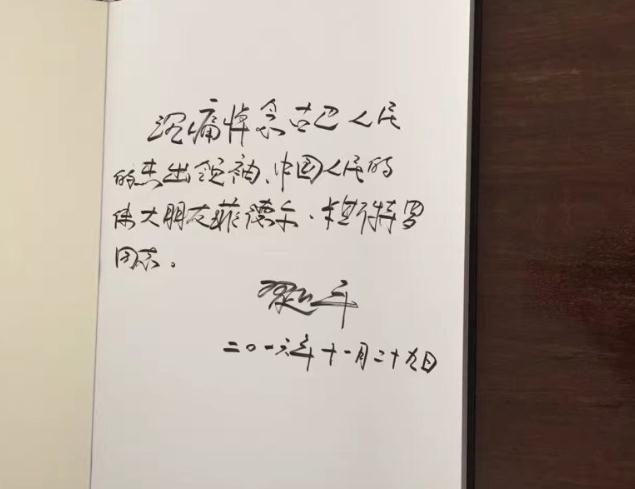 沉痛悼念古巴人民
的杰出领袖、中国人民的
伟大朋友菲德尔·卡斯特罗
同志。
二〇一六年十一月二十九日